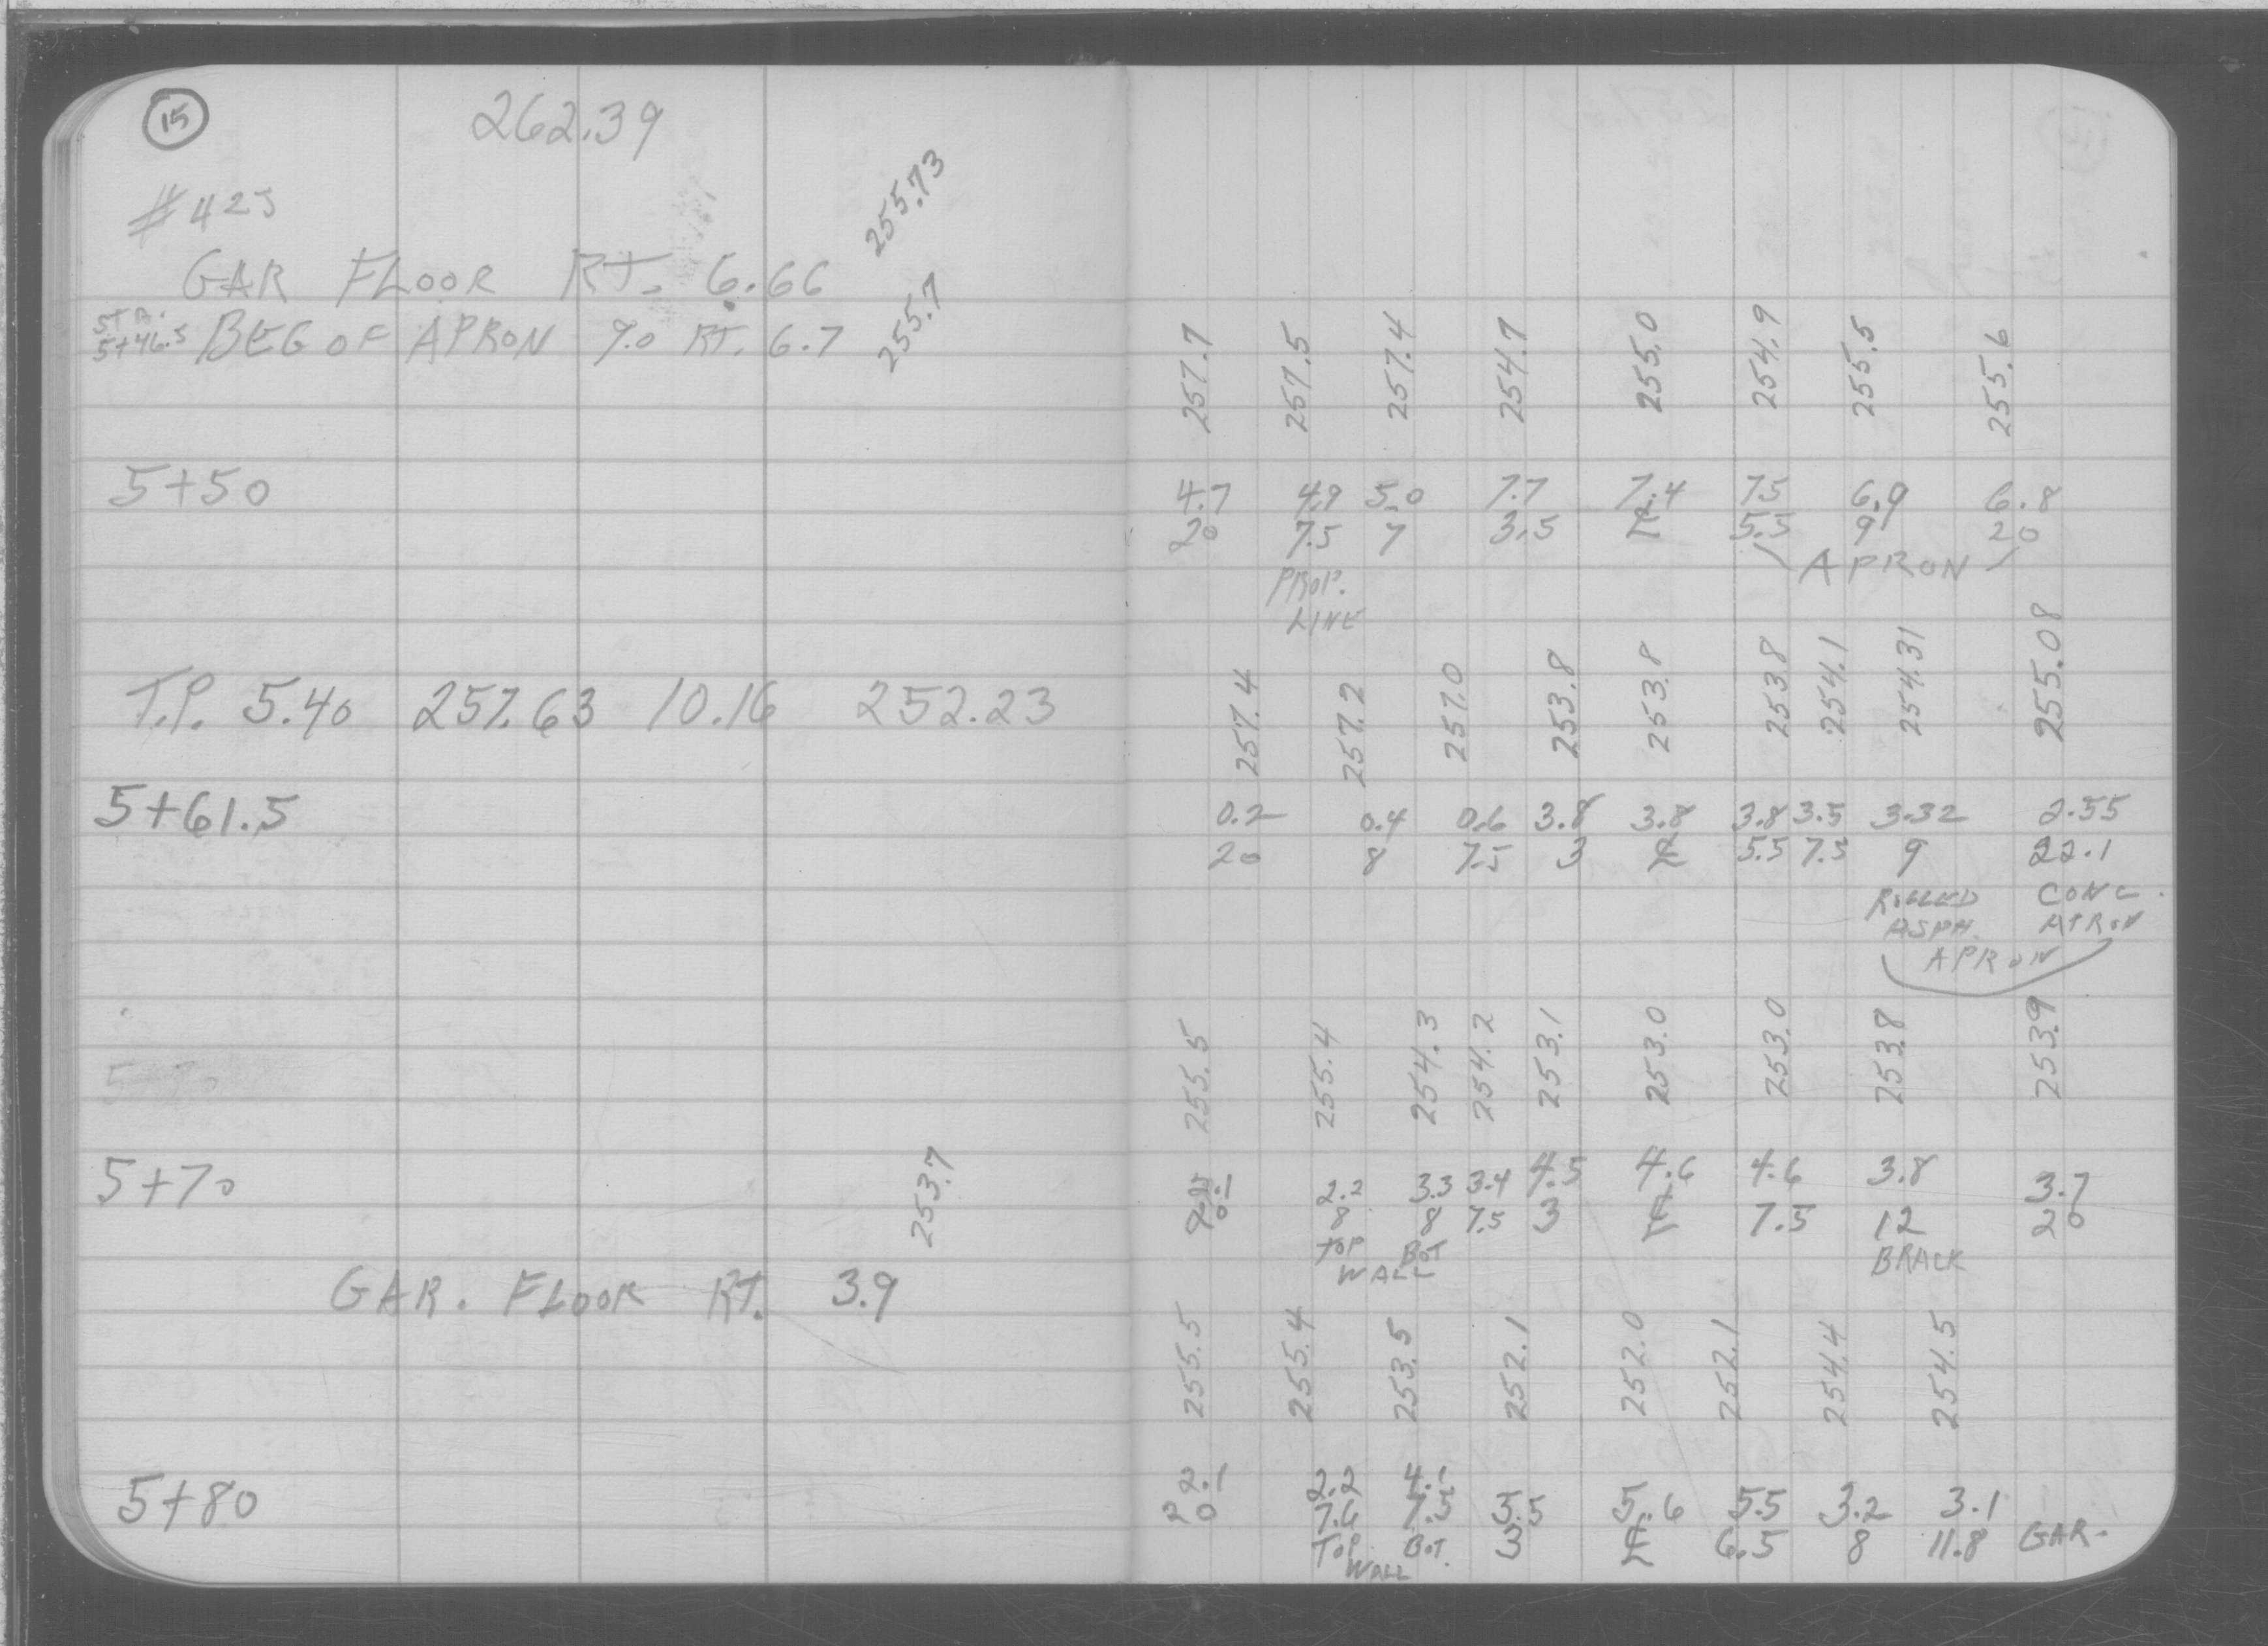 15
262.39
#425
GAR FLOOR RT. 6.66 255.73
STA. 5+46.5 BEG OF APRON 9.0 RT. 6.7 255.7
257.7 257.5 257.4 254.7 255.0 254.9 255.5 255.6
5+50 4.7 4.9 5.0 7.7 7.4 7.5 6.9 6.8
20 7.5 7 3.5 ℄ 5.5 9 20
PROP. LINE APRON
257.4 257.2 257.0 253.8 253.8 253.8 254.1 254.31 255.08
T.P. 5.40 257.63 10.16 252.23
5+61.5 0.2 0.4 0.6 3.8 3.8 3.8 3.5 3.32 2.55
20 8 7.5 3 ℄ 5.5 7.5 9 22.1
ROLLED ASPH. CONC. APRON
APRON
255.5 255.4 254.3 254.2 253.1 253.0 253.0 253.8 253.9
5+70 2.2 3.3 3.4 4.5 4.6 4.6 3.8 3.7
8 8 7.5 3 ℄ 7.5 12 20
TOP BOT BRACK
WALL
253.7
GAR. FLOOR RT. 3.9
255.5 255.4 253.5 252.1 252.0 252.1 254.4 254.5
5+80 2.1 2.2 4.1 5.5 5.6 5.5 3.2 3.1
20 7.6 7.5 3 ℄ 6.5 8 11.8 GAR.
TOP BOT.
WALL